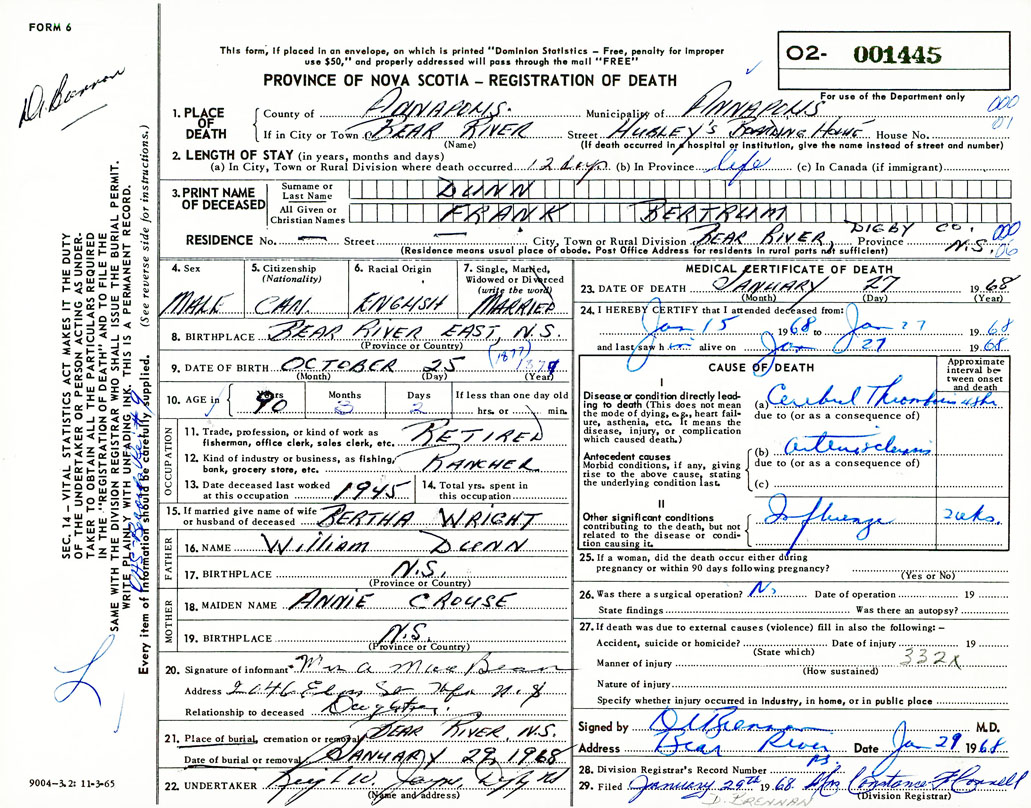 FORM 6
This form, if placed in an envelope, on which is printed "Dominion Statistics – Free, penalty for improper
use $50," and properly addressed will pass through the mail "FREE"
PROVINCE OF NOVA SCOTIA – REGISTRATION OF DEATH
O2- 001445
For use of the Department only
000
01
D. Brennan
1. PLACE OF DEATH
County of ANNAPOLIS. Municipality of ANNAPOLIS
If in City or Town BEAR RIVER Street HUBLEY'S BOARDING HOME House No.
(Name) (If death occurred in a hospital or institution, give the name instead of street and number)
2. LENGTH OF STAY (in years, months and days)
(a) In City, Town or Rural Division where death occurred 12 days (b) In Province life (c) In Canada (if immigrant)
3. PRINT NAME OF DECEASED
Surname or Last Name DUNN
All Given or Christian Names FRANK BERTRUM
RESIDENCE No. — Street — City, Town or Rural Division BEAR RIVER, DIGBY CO. Province N.S.
000
06
(Residence means usual place of abode. Post Office Address for residents in rural parts not sufficient)
4. Sex MALE
5. Citizenship (Nationality) CAN.
6. Racial Origin ENGLISH
7. Single, Married, Widowed or Divorced (write the word) MARRIED
8. BIRTHPLACE BEAR RIVER EAST, N.S.
(Province or Country)
9. DATE OF BIRTH OCTOBER 25 (1877)
(Month) (Day) (Year)
10. AGE in Years 90 Months 3 Days 2 If less than one day old hrs. or min.
OCCUPATION
11. Trade, profession, or kind of work as fisherman, office clerk, sales clerk, etc. RETIRED
12. Kind of industry or business, as fishing, bank, grocery store, etc. RANCHER
13. Date deceased last worked at this occupation 1945
14. Total yrs. spent in this occupation
15. If married give name of wife or husband of deceased BERTHA WRIGHT
FATHER
16. NAME WILLIAM DUNN
17. BIRTHPLACE N.S.
(Province or Country)
MOTHER
18. MAIDEN NAME ANNIE CROUSE
19. BIRTHPLACE N.S.
(Province or Country)
20. Signature of informant Mrs A MacBean
Address St N.S
Relationship to deceased Daughter.
21. Place of burial, cremation or removal BEAR RIVER, N.S.
Date of burial or removal JANUARY 29, 1968
22. UNDERTAKER
(Name and address)
MEDICAL CERTIFICATE OF DEATH
23. DATE OF DEATH JANUARY 27 1968
(Month) (Day) (Year)
24. I HEREBY CERTIFY that I attended deceased from:
Jan 15 1968 to Jan 27 1968
and last saw him alive on Jan 27 1968
CAUSE OF DEATH
Approximate interval between onset and death
I
Disease or condition directly leading to death (This does not mean the mode of dying, e.g., heart failure, asthenia, etc. It means the disease, injury, or complication which caused death.)
(a) Cerebral Thrombosis 48hr
due to (or as a consequence of)
Antecedent causes
Morbid conditions, if any, giving rise to the above cause, stating the underlying condition last.
(b) arteriosclerosis
due to (or as a consequence of)
(c)
II
Other significant conditions contributing to the death, but not related to the disease or condition causing it.
Influenza 2wks.
25. If a woman, did the death occur either during pregnancy or within 90 days following pregnancy?
(Yes or No)
26. Was there a surgical operation? No Date of operation 19
State findings Was there an autopsy?
27. If death was due to external causes (violence) fill in also the following: –
Accident, suicide or homicide? Date of injury 19
(State which)
332X
Manner of injury
(How sustained)
Nature of injury
Specify whether injury occurred in Industry, in home, or in public place
Signed by D. Brennan M.D.
Address Bear River Date Jan 29 1968
NS.
28. Division Registrar's Record Number
29. Filed January 29th 1968 Mrs Constance F Connell
(Division Registrar)
D. BRENNAN
SEC. 14 – VITAL STATISTICS ACT MAKES IT THE DUTY
OF THE UNDERTAKER OR PERSON ACTING AS UNDER-
TAKER TO OBTAIN ALL THE PARTICULARS REQUIRED
IN THE "REGISTRATION OF DEATH" AND TO FILE THE
SAME WITH THE DIVISION REGISTRAR WHO SHALL ISSUE THE BURIAL PERMIT.
WRITE PLAINLY WITH UNFADING INK. THIS IS A PERMANENT RECORD.
Every item of information should be carefully supplied. (See reverse side for instructions.)
9004–3.2: 11-3-65